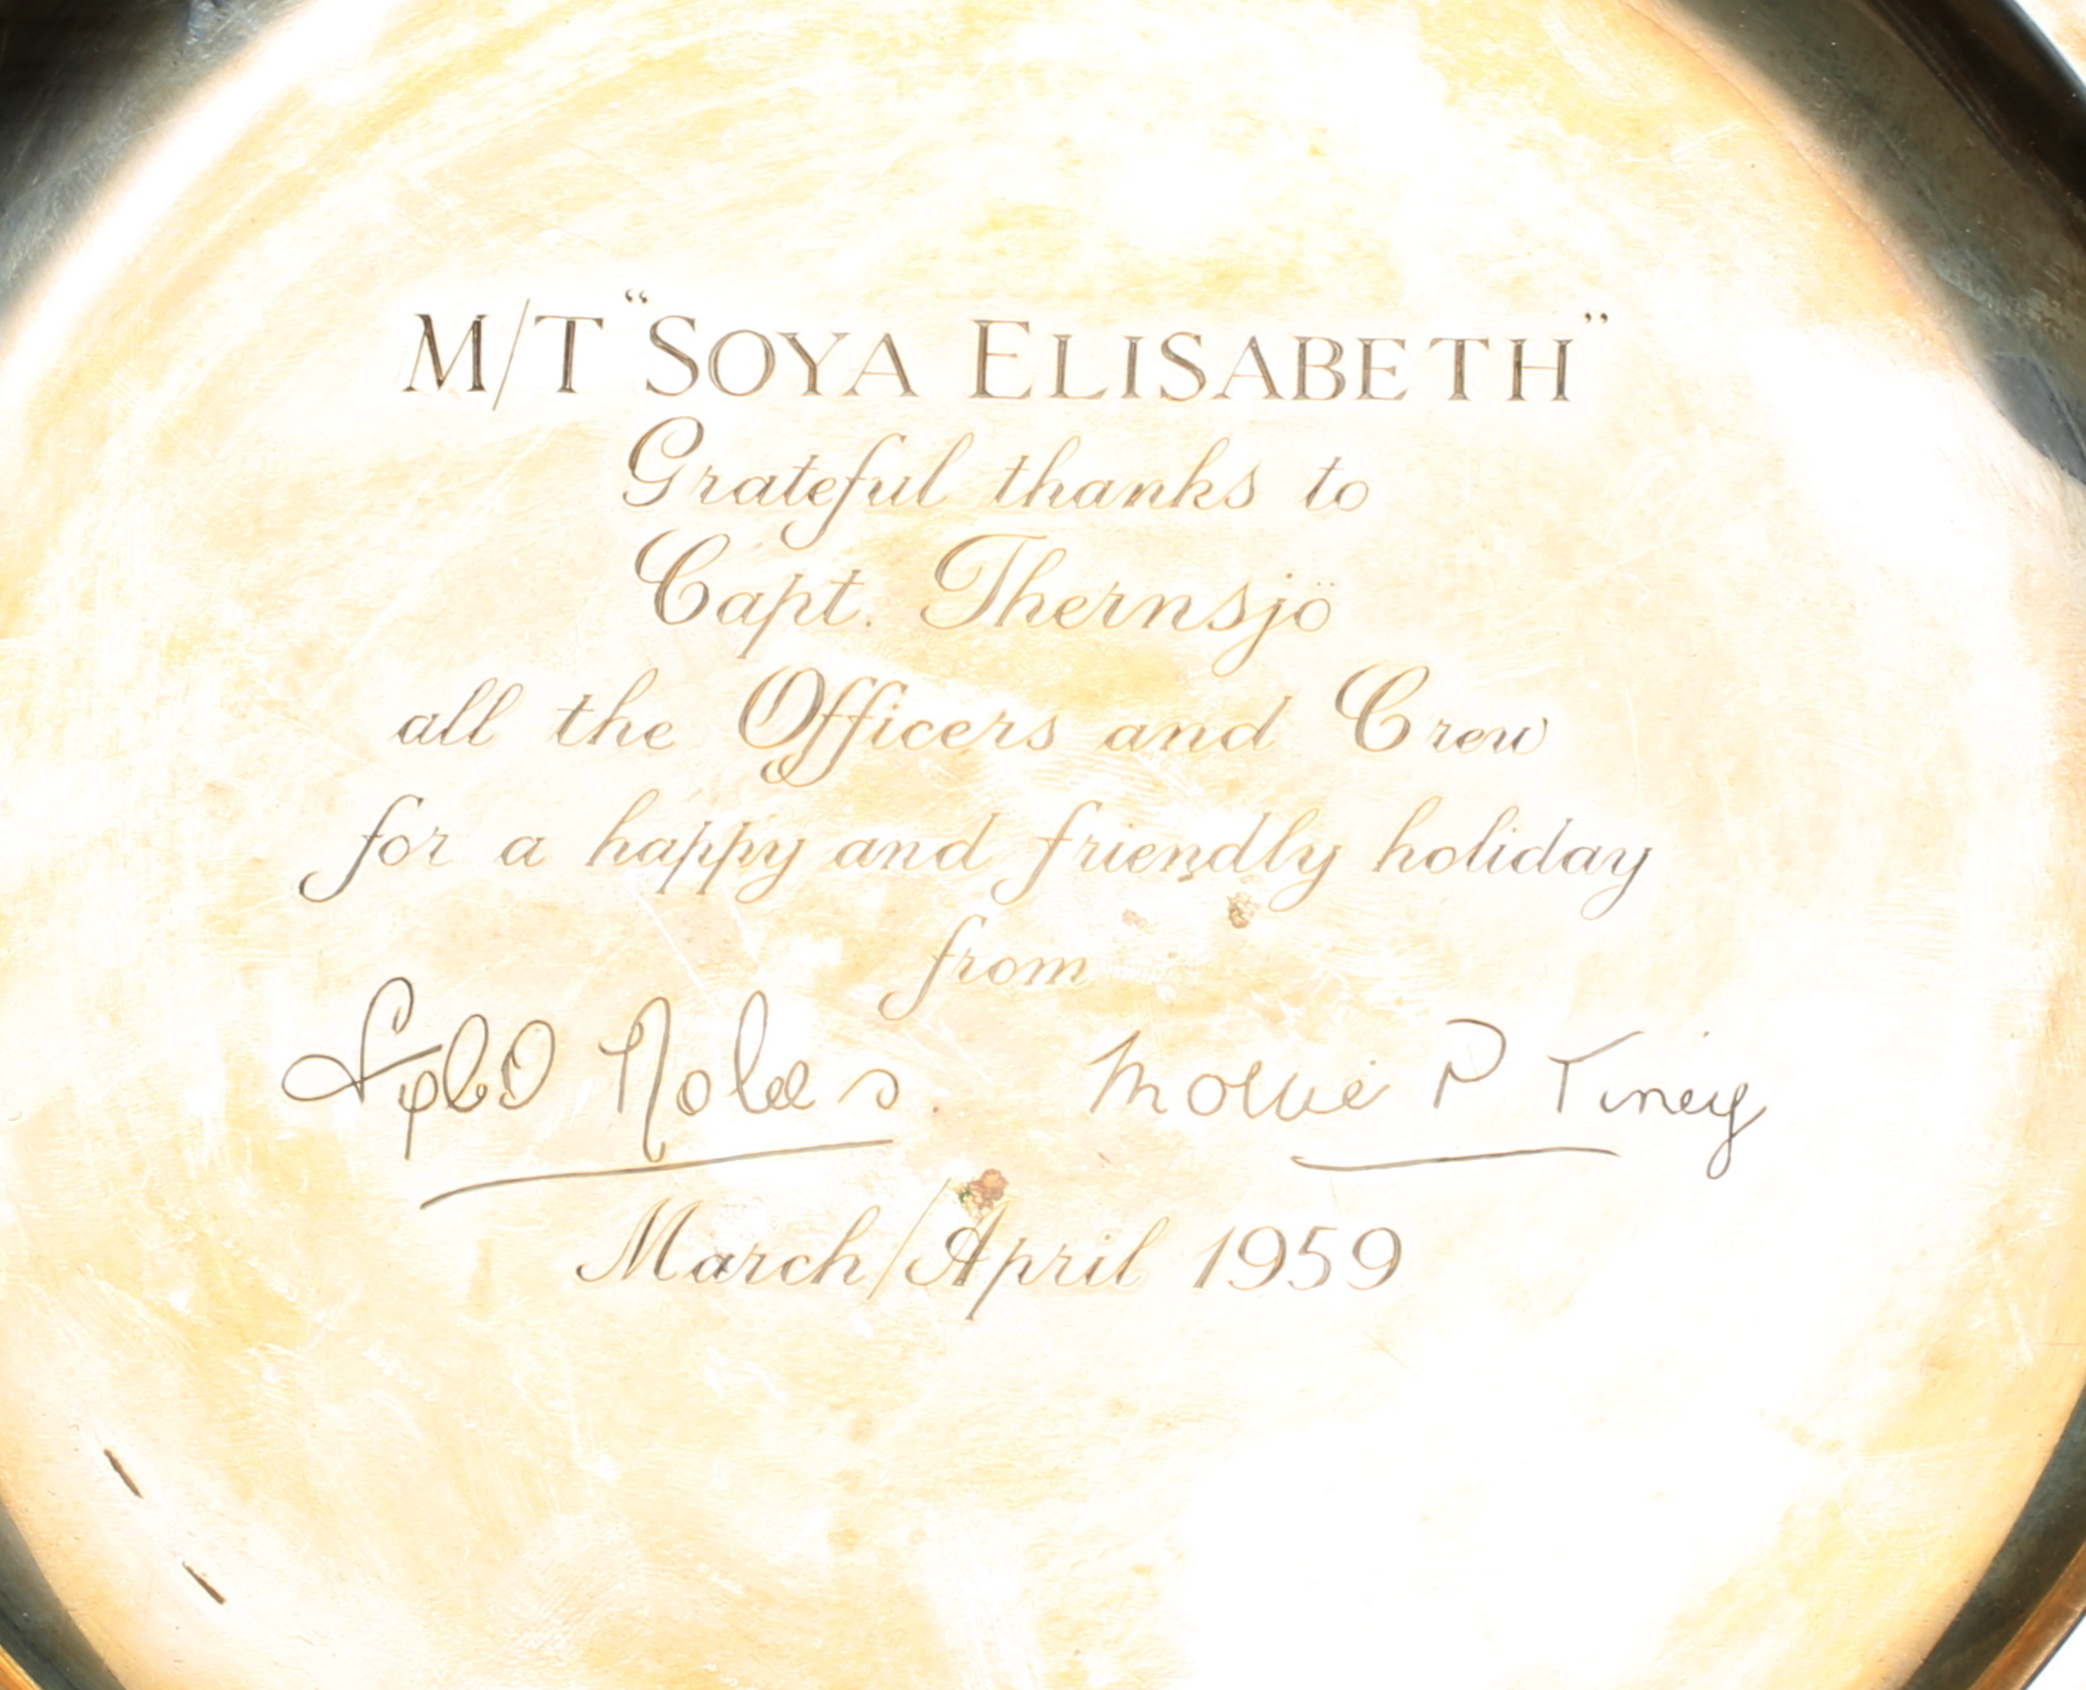 M/T "SOYA ELISABETH"
Grateful thanks to
Capt. Thernsjö
all the Officers and Crew
for a happy and friendly holiday
from
Mollie P Tiney
March/April 1959